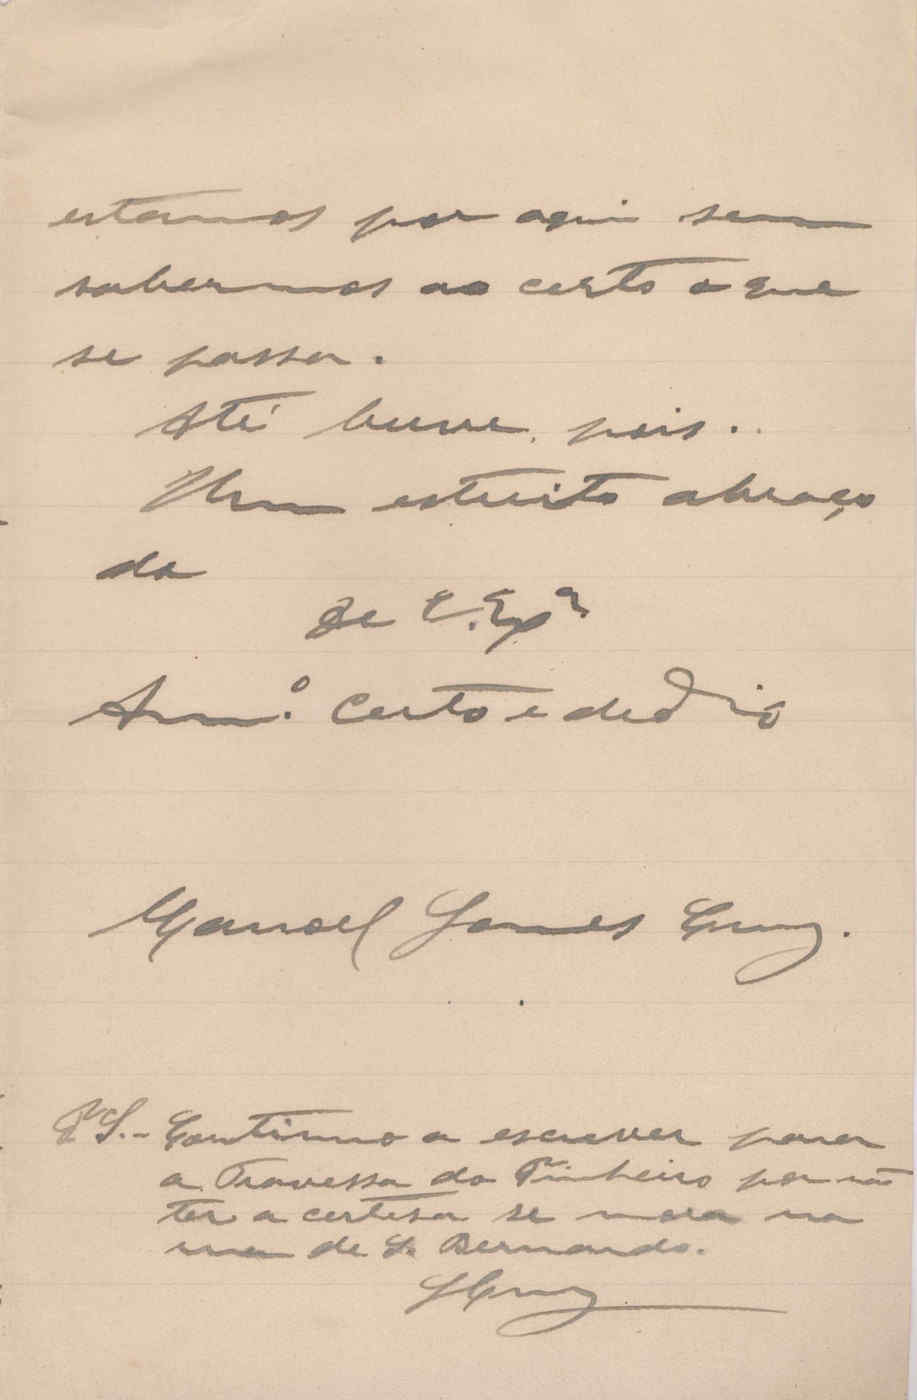 estamos por aqui sem
sabermos ao certo o que
se passa.
Até breve, pois..
Um estreito abraço
do
De V. Exª
Am.º certo e dedº
Manoel Gomes Cruz.
PS.- Continuo a escrever para
a Travessa do Pinheiro por não
ter a certesa se mora na
rua de S. Bernardo.
GCruz